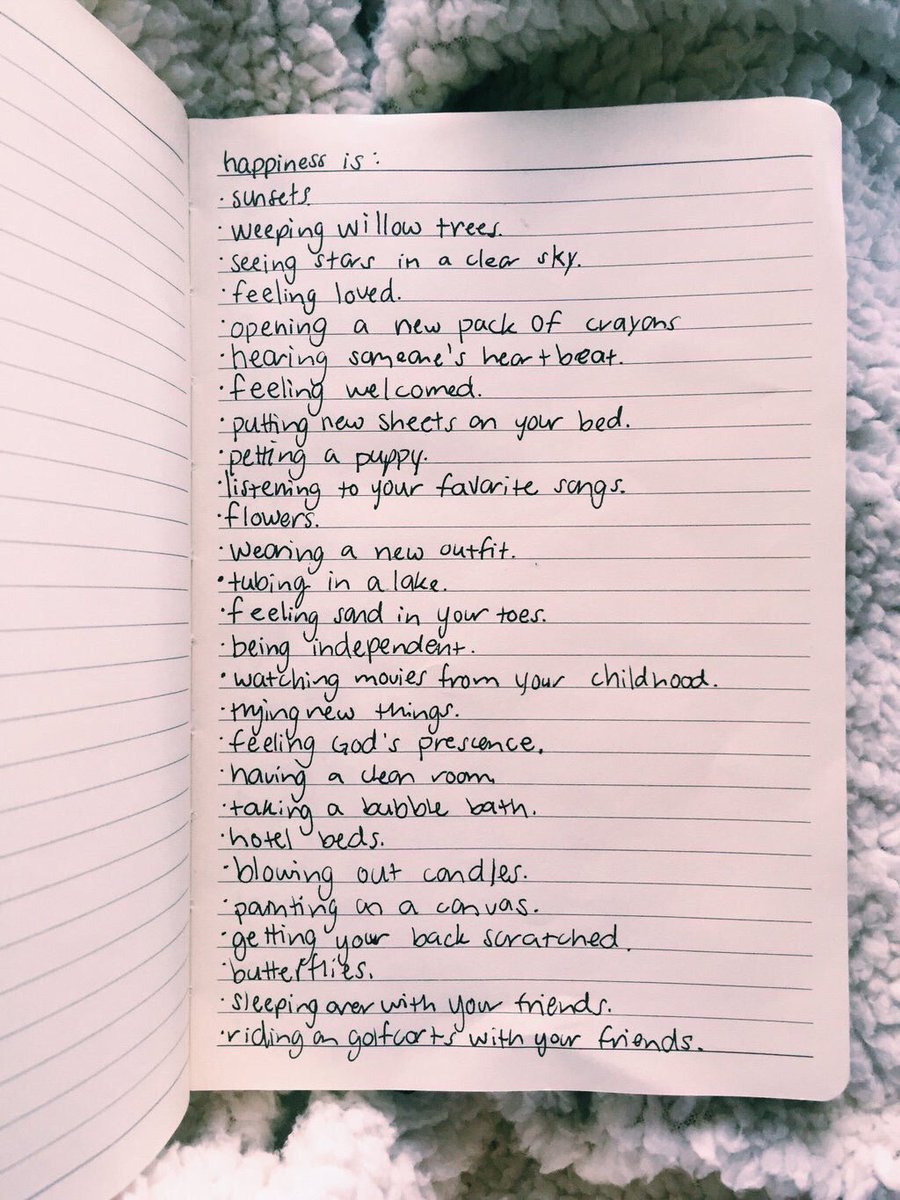 happiness is:
·sunsets.
·weeping willow trees.
·seeing stars in a clear sky.
·feeling loved.
·opening a new pack of crayons
·hearing someone's heartbeat.
·feeling welcomed.
·putting new sheets on your bed.
·petting a puppy.
·listening to your favorite songs.
·flowers.
·wearing a new outfit.
·tubing in a lake.
·feeling sand in your toes.
·being independent.
·watching movies from your childhood.
·trying new things.
·feeling God's prescence.
·having a clean room.
·taking a bubble bath.
·hotel beds.
·blowing out candles.
·painting on a canvas.
·getting your back scratched.
·butterflies.
·sleeping over with your friends.
·riding on golfcarts with your friends.